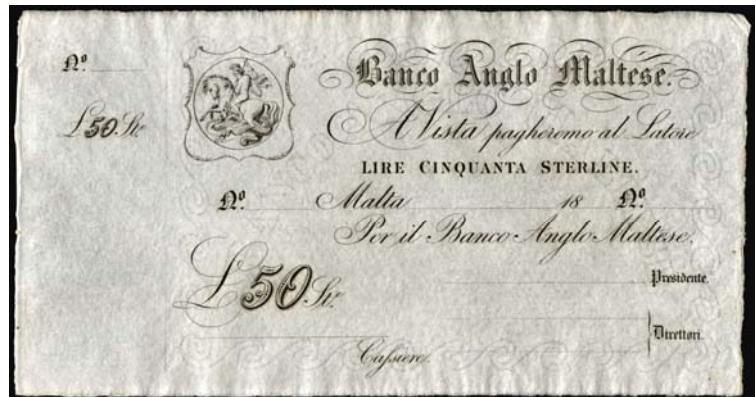 Nº
£50. Str.
Banco Anglo Maltese.
A Vista pagheremo al Latore
LIRE CINQUANTA STERLINE.
Nº Malta 18 Nº
Per il Banco Anglo Maltese.
£50. Str.
Presidente.
Direttori.
Cafsiere.